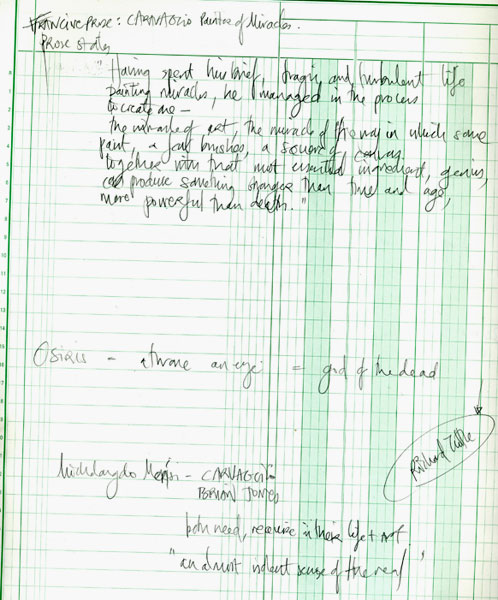 FRANCINE PROSE: CARAVAGGIO Painter of Miracles.
Prose states
"Having spent his brief, tragic and turbulent life
painting miracles, he managed in the process
to create one —
the miracle of art, the miracle of the way in which some
paint, a few brushes, a square of canvas
together with that most essential ingredient, genius,
can produce something stronger than time and age,
more powerful than death."
Osiris – a throne an eye = god of the dead
Richard Tuttle
Michelangelo Merisi – CARAVAGGIO
BRIAN JONES
both need, require in their life + art
"an almost violent sense of the real"